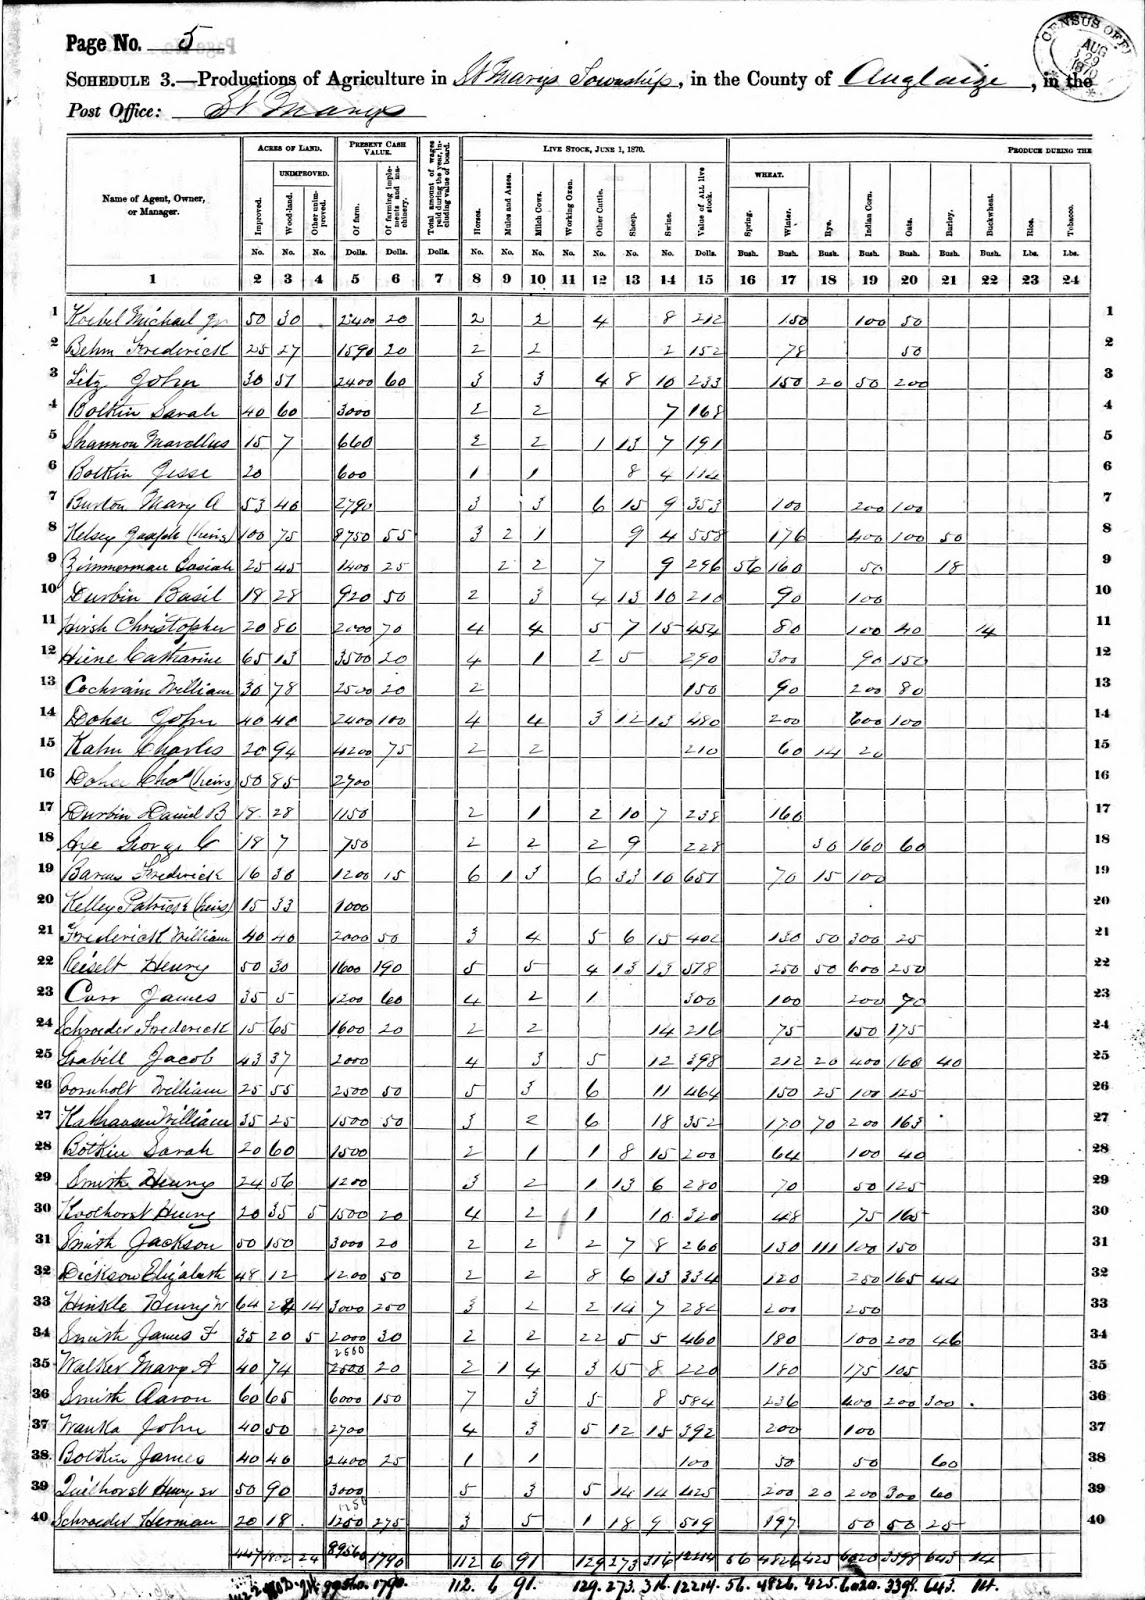 Page No. 5
SCHEDULE 3.—Productions of Agriculture in St Marys Township, in the County of Auglaize, in the
Post Office: St Marys
CENSUS OFFI AUG 29 1870
ACRES OF LAND. PRESENT CASH VALUE. Total amount of wages paid during the year, including value of board. LIVE STOCK, JUNE 1, 1870. PRODUCE DURING THE
UNIMPROVED. WHEAT.
Name of Agent, Owner, or Manager. Improved. Wood-land. Other unimproved. Of farm. Of farming implements and machinery. Horses. Mules and Asses. Milch Cows. Working Oxen. Other Cattle. Sheep. Swine. Value of ALL live stock. Spring. Winter. Rye. Indian Corn. Oats. Barley. Buckwheat. Rice. Tobacco.
No. No. No. Dolls. Dolls. Dolls. No. No. No. No. No. No. No. Dolls. Bush. Bush. Bush. Bush. Bush. Bush. Bush. Lbs. Lbs.
1 2 3 4 5 6 7 8 9 10 11 12 13 14 15 16 17 18 19 20 21 22 23 24
1 Koebel Michael Jr 50 30 2400 20 2 2 4 8 212 150 100 50 1
2 Behm Frederick 25 27 1590 20 2 2 2 152 78 50 2
3 Litz John 30 51 2400 60 3 3 4 8 10 233 150 20 50 200 3
4 Botkin Sarah 40 60 3000 2 2 7 168 4
5 Shannon Marcellus 15 7 660 2 2 1 13 7 191 5
6 Botkin Jesse 20 600 1 1 8 4 114 6
7 Burton Mary A 53 40 2790 3 3 6 15 9 353 100 200 100 7
8 Kelsey Joseph (heirs) 100 75 8750 55 3 2 1 9 4 558 176 400 100 50 8
9 Zimmerman Casiah 25 45 1400 25 2 2 7 9 296 56 160 50 18 9
10 Durbin Basil 18 28 920 50 2 3 4 13 10 210 90 100 10
11 Hirsh Christopher 20 80 2000 70 4 4 5 7 15 454 80 100 40 14 11
12 Hiene Catharine 65 13 3500 20 4 1 2 5 290 300 90 150 12
13 Cochrain William 30 78 2500 20 2 150 90 200 80 13
14 Doher John 40 40 2400 100 4 4 3 12 13 480 200 600 100 14
15 Kahn Charles 20 94 4200 75 2 2 210 60 14 20 15
16 Doher Chas (heirs) 50 85 2700 16
17 Durbin Daniel B 18 28 1150 2 1 2 10 7 238 160 17
18 Axe George C 18 7 750 2 2 2 9 228 30 160 60 18
19 Barus Frederick 16 30 1200 15 6 1 3 6 33 10 651 70 15 100 19
20 Kelley Patrick (heirs) 15 33 1000 20
21 Frederick William 40 40 2000 50 3 4 5 6 15 402 130 50 300 25 21
22 Reiselt Henry 50 30 1600 190 5 5 4 13 13 578 250 50 600 250 22
23 Carr James 35 5 1200 60 4 2 1 300 100 200 70 23
24 Schroeder Frederick 15 65 1600 20 2 2 14 216 75 150 175 24
25 Grabill Jacob 43 37 2000 4 3 5 12 398 212 20 400 160 40 25
26 Cornholt William 25 55 2500 50 5 3 6 11 464 150 25 100 125 26
27 William 35 25 1500 50 3 2 6 18 352 170 70 200 163 27
28 Botkin Sarah 20 60 1500 2 1 1 8 15 200 64 100 40 28
29 Smith Henry 24 56 1200 3 2 1 13 6 280 70 50 125 29
30 Koolhorst Henry 20 35 5 1500 20 4 2 1 10 320 48 75 165 30
31 Smith Jackson 50 150 3000 20 2 2 2 7 8 260 130 111 100 150 31
32 Dickson Elizabeth 48 12 1200 50 2 2 8 6 13 334 120 250 165 44 32
33 Hinkle Henry W 64 24 14 3000 250 3 2 2 14 7 282 200 250 33
34 Smith James F 35 20 5 2000 30 2 2 22 5 5 460 180 100 200 46 34
2500
35 Walker Mary A 40 74 2500 20 2 1 4 3 15 8 220 180 175 105 35
36 Smith Aaron 60 65 6000 150 7 3 5 8 584 236 400 200 300 36
37 Wanka John 40 50 2700 4 3 5 12 15 392 200 100 37
38 Botkin James 40 40 2400 25 1 1 100 50 50 60 38
39 Quilhorst Henry sr 50 90 3000 5 3 5 14 14 425 200 20 200 300 60 39
1250
40 Schroeder Herman 20 18 1250 275 3 5 1 18 9 519 197 50 50 25 40
1802 24 89560 1790 112 6 91 129 273 316 12214 56 4826 425 6020 3398 643 14
1790. 112. 6 91. 129. 273. 316. 12214. 56. 4826. 425. 6020. 3398. 643. 14.